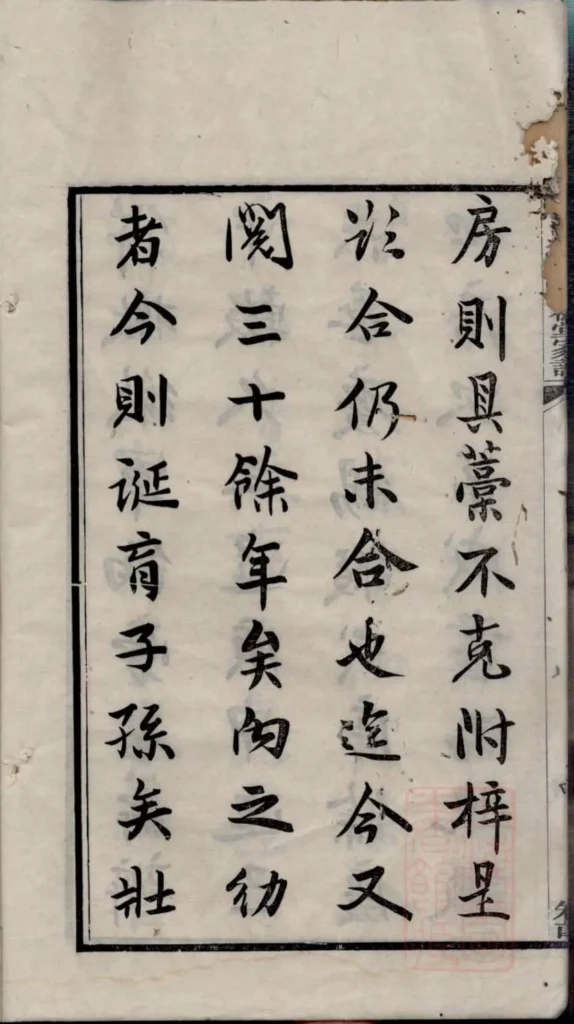 房則具藁不克附梓是
欵合仍未合也迄今又
閱三十餘年矣向之幼
者今則誕育子孫矣壯